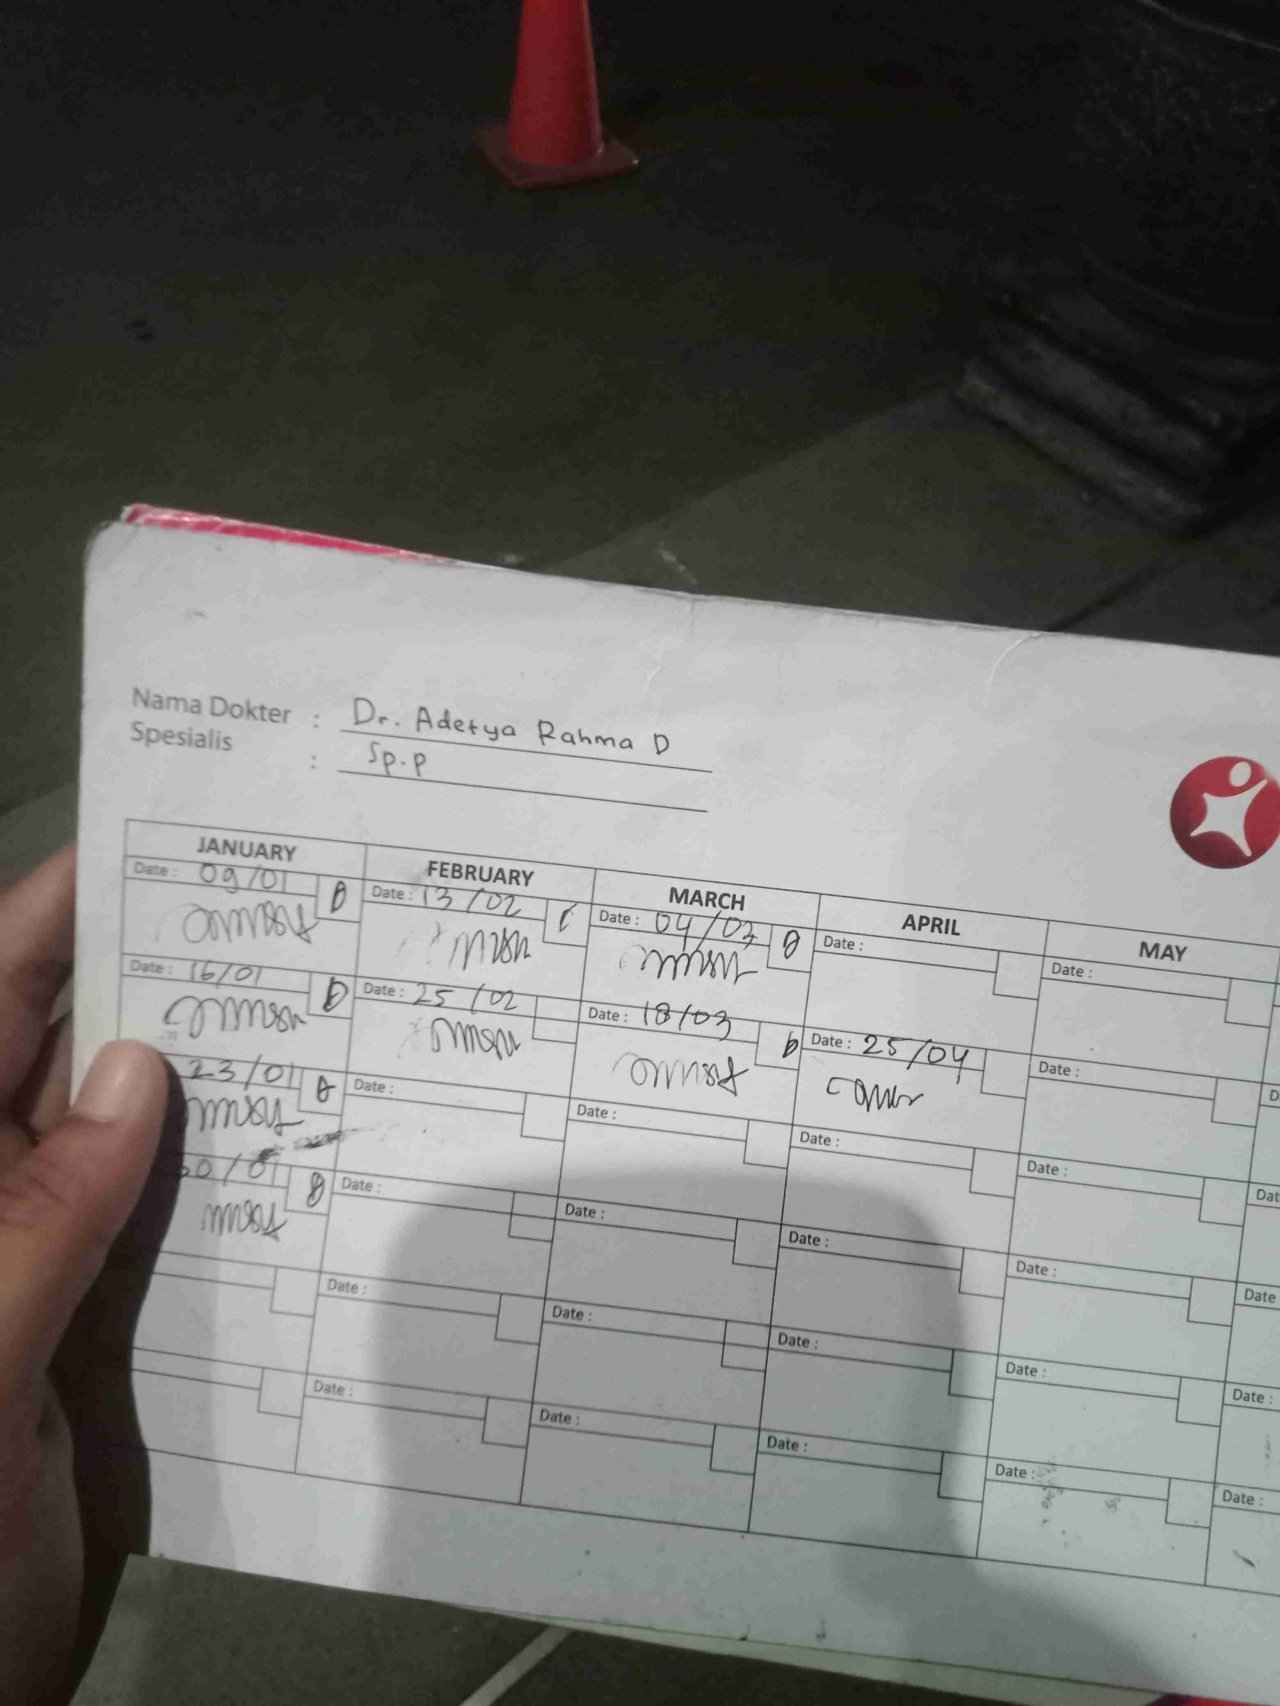 Nama Dokter : Dr. Adetya Rahma D
Spesialis : Sp.p
JANUARY FEBRUARY MARCH APRIL MAY
Date : 09/01 Date : 13/02 Date : 04/03 Date : Date :
Date : 16/01 Date : 25/02 Date : 18/03 Date : 25/04 Date :
23/01 Date : Date : Date : Date :
0/01 Date : Date : Date : Date : Date
Date : Date : Date : Date : Date :
Date : Date : Date : Date : Date :